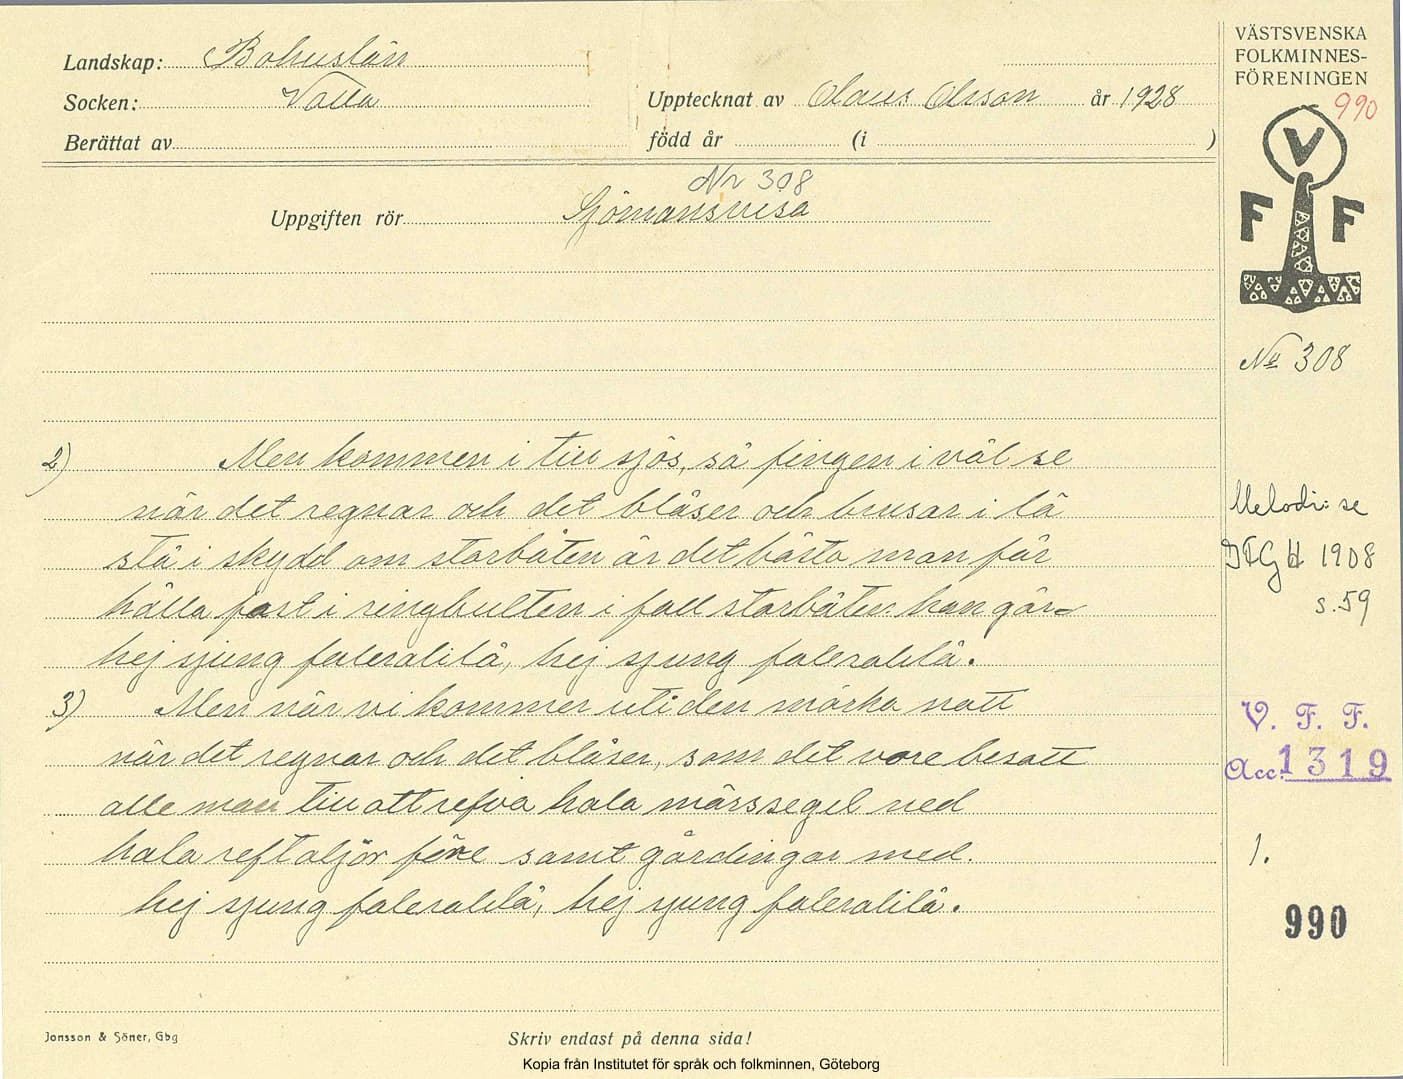 Landskap: Bohuslän
Socken: Valla
Berättat av
Upptecknat av Olaus Olsson år 1928
född år (i )
Nr 308
Uppgiften rör Sjömansvisa
2) Men kommen i till sjös, så fingen i väl se
när det regnar och det blåser och brusar i lä
stå i skydd om storbåten är det bästa man får
hålla fast i ringbulten i fall storbåten han går
hej sjung faleralilå, hej sjung faleralilå.
3) Men när vi kommer uti den mörka natt
när det regnar och det blåser, som det vore besatt
alle man till att refva hala märssegel ned
hala reftaljor före samt gårdingar med.
hej sjung faleralilå, hej sjung faleralilå.
Jonsson & Söner, Gbg
Skriv endast på denna sida!
Kopia från Institutet för språk och folkminnen, Göteborg
VÄSTSVENSKA
FOLKMINNES-
FÖRENINGEN
990
V
F F
No 308
Melodi: se
IFGH 1908
s. 59
V. F. F.
Acc. 1319
1.
990